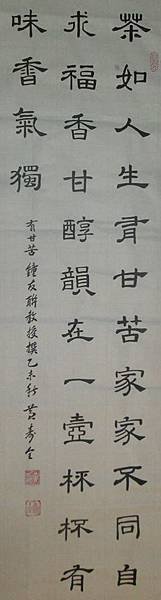 茶如人生有甘苦家家不同自
求福香甘醇韻在一壺杯杯有
味香氣獨
有甘苦鍾友聯教授撰乙未秋黃壽全